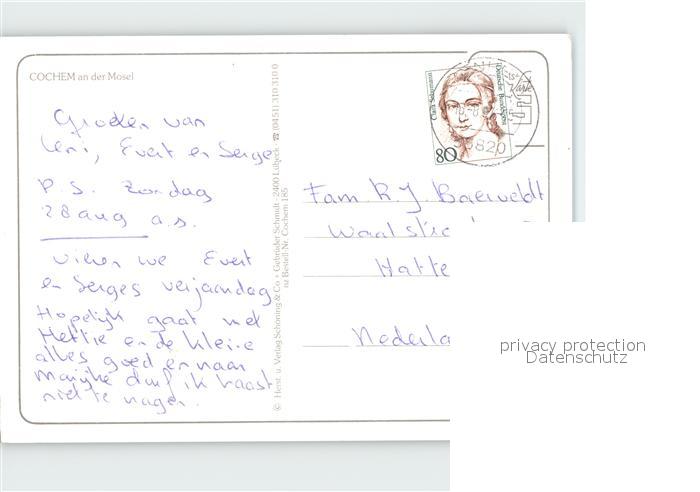 COCHEM an der Mosel
Groeten van
Leni, Evert en Serge
P.S. Zondag
28 aug a.s.
vieren we Evert
en Serges verjaardag
Hopelijk gaat met
Hettie en de kleine
alles goed en naar
Marijke durf ik haast
niet te vragen.
© Herst. u. Verlag Schöning & Co · Gebrüder Schmidt · 2400 Lübeck ☎ (0451) 310 310 0
nz Bestell-Nr. Cochem 185
Clara Schumann
Deutsche Bundespost
80
820
Fam R. J. Baerveldt
Hatte
Nederla
privacy protection
Datenschutz